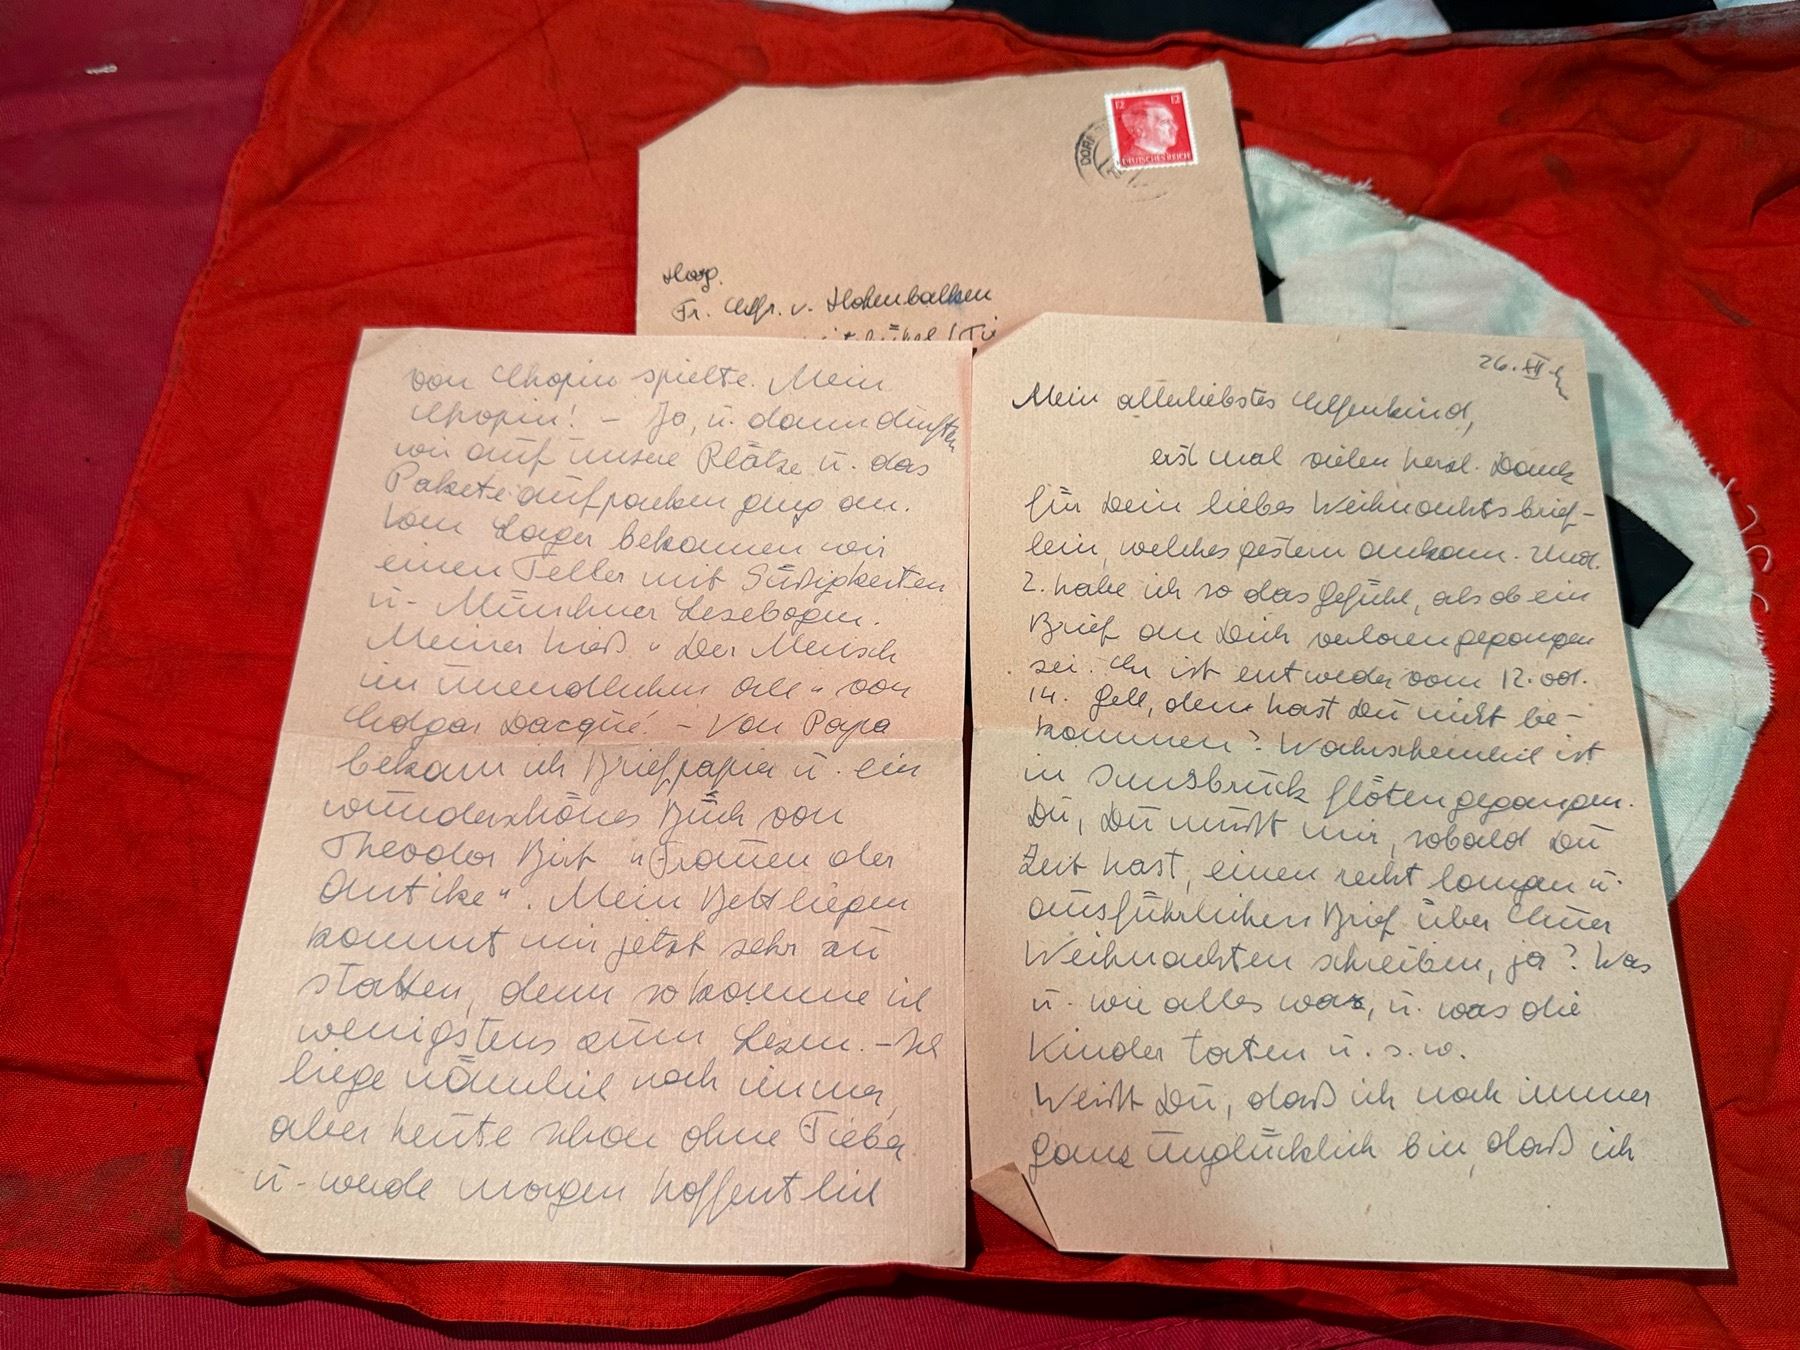 12 12
DEUTSCHES REICH
DORF
Fr. v. Hohenbalken
von Chopin spielte. Mein
Chopin! – Ja, u. dann durften
wir auf unsere Plätze u. das
Paketeaufpacken ging an.
Vom Lager bekamen wir
einen Teller mit Süßigkeiten
u. Münchner Lesebogen.
Meiner hieß "Der Mensch
im unendlichen All" von
Edgar Dacqué. – Von Papa
bekam ich Briefpapier u. ein
wunderschönes Buch von
Theodor Birt "Frauen der
Antike". Mein Bettliegen
kommt mir jetzt sehr zu
statten, denn so komme ich
wenigstens zum Lesen. – Ich
liege nämlich noch immer,
aber heute schon ohne Fieber
u. werde morgen hoffentlich
26. XII.
Mein allerliebstes Elfenkind,
erst mal vielen herzl. Dank
für Dein liebes Weihnachtsbrief-
lein, welches gestern ankam. Und
2. habe ich so das Gefühl, als ob ein
Brief an Dich verlorengegangen
sei. Er ist entweder vom 12. od.
14. Gell, den hast Du nicht be-
kommen? Wahrscheinlich ist
in Innsbruck flötengegangen.
Du, Du mußt mir, sobald Du
Zeit hast, einen recht langen u.
ausführlichen Brief über Euer
Weihnachten schreiben, ja? Was
u. wie alles war, u. was die
Kinder taten u. s. w.
Weißt Du, daß ich noch immer
ganz unglücklich bin, daß ich